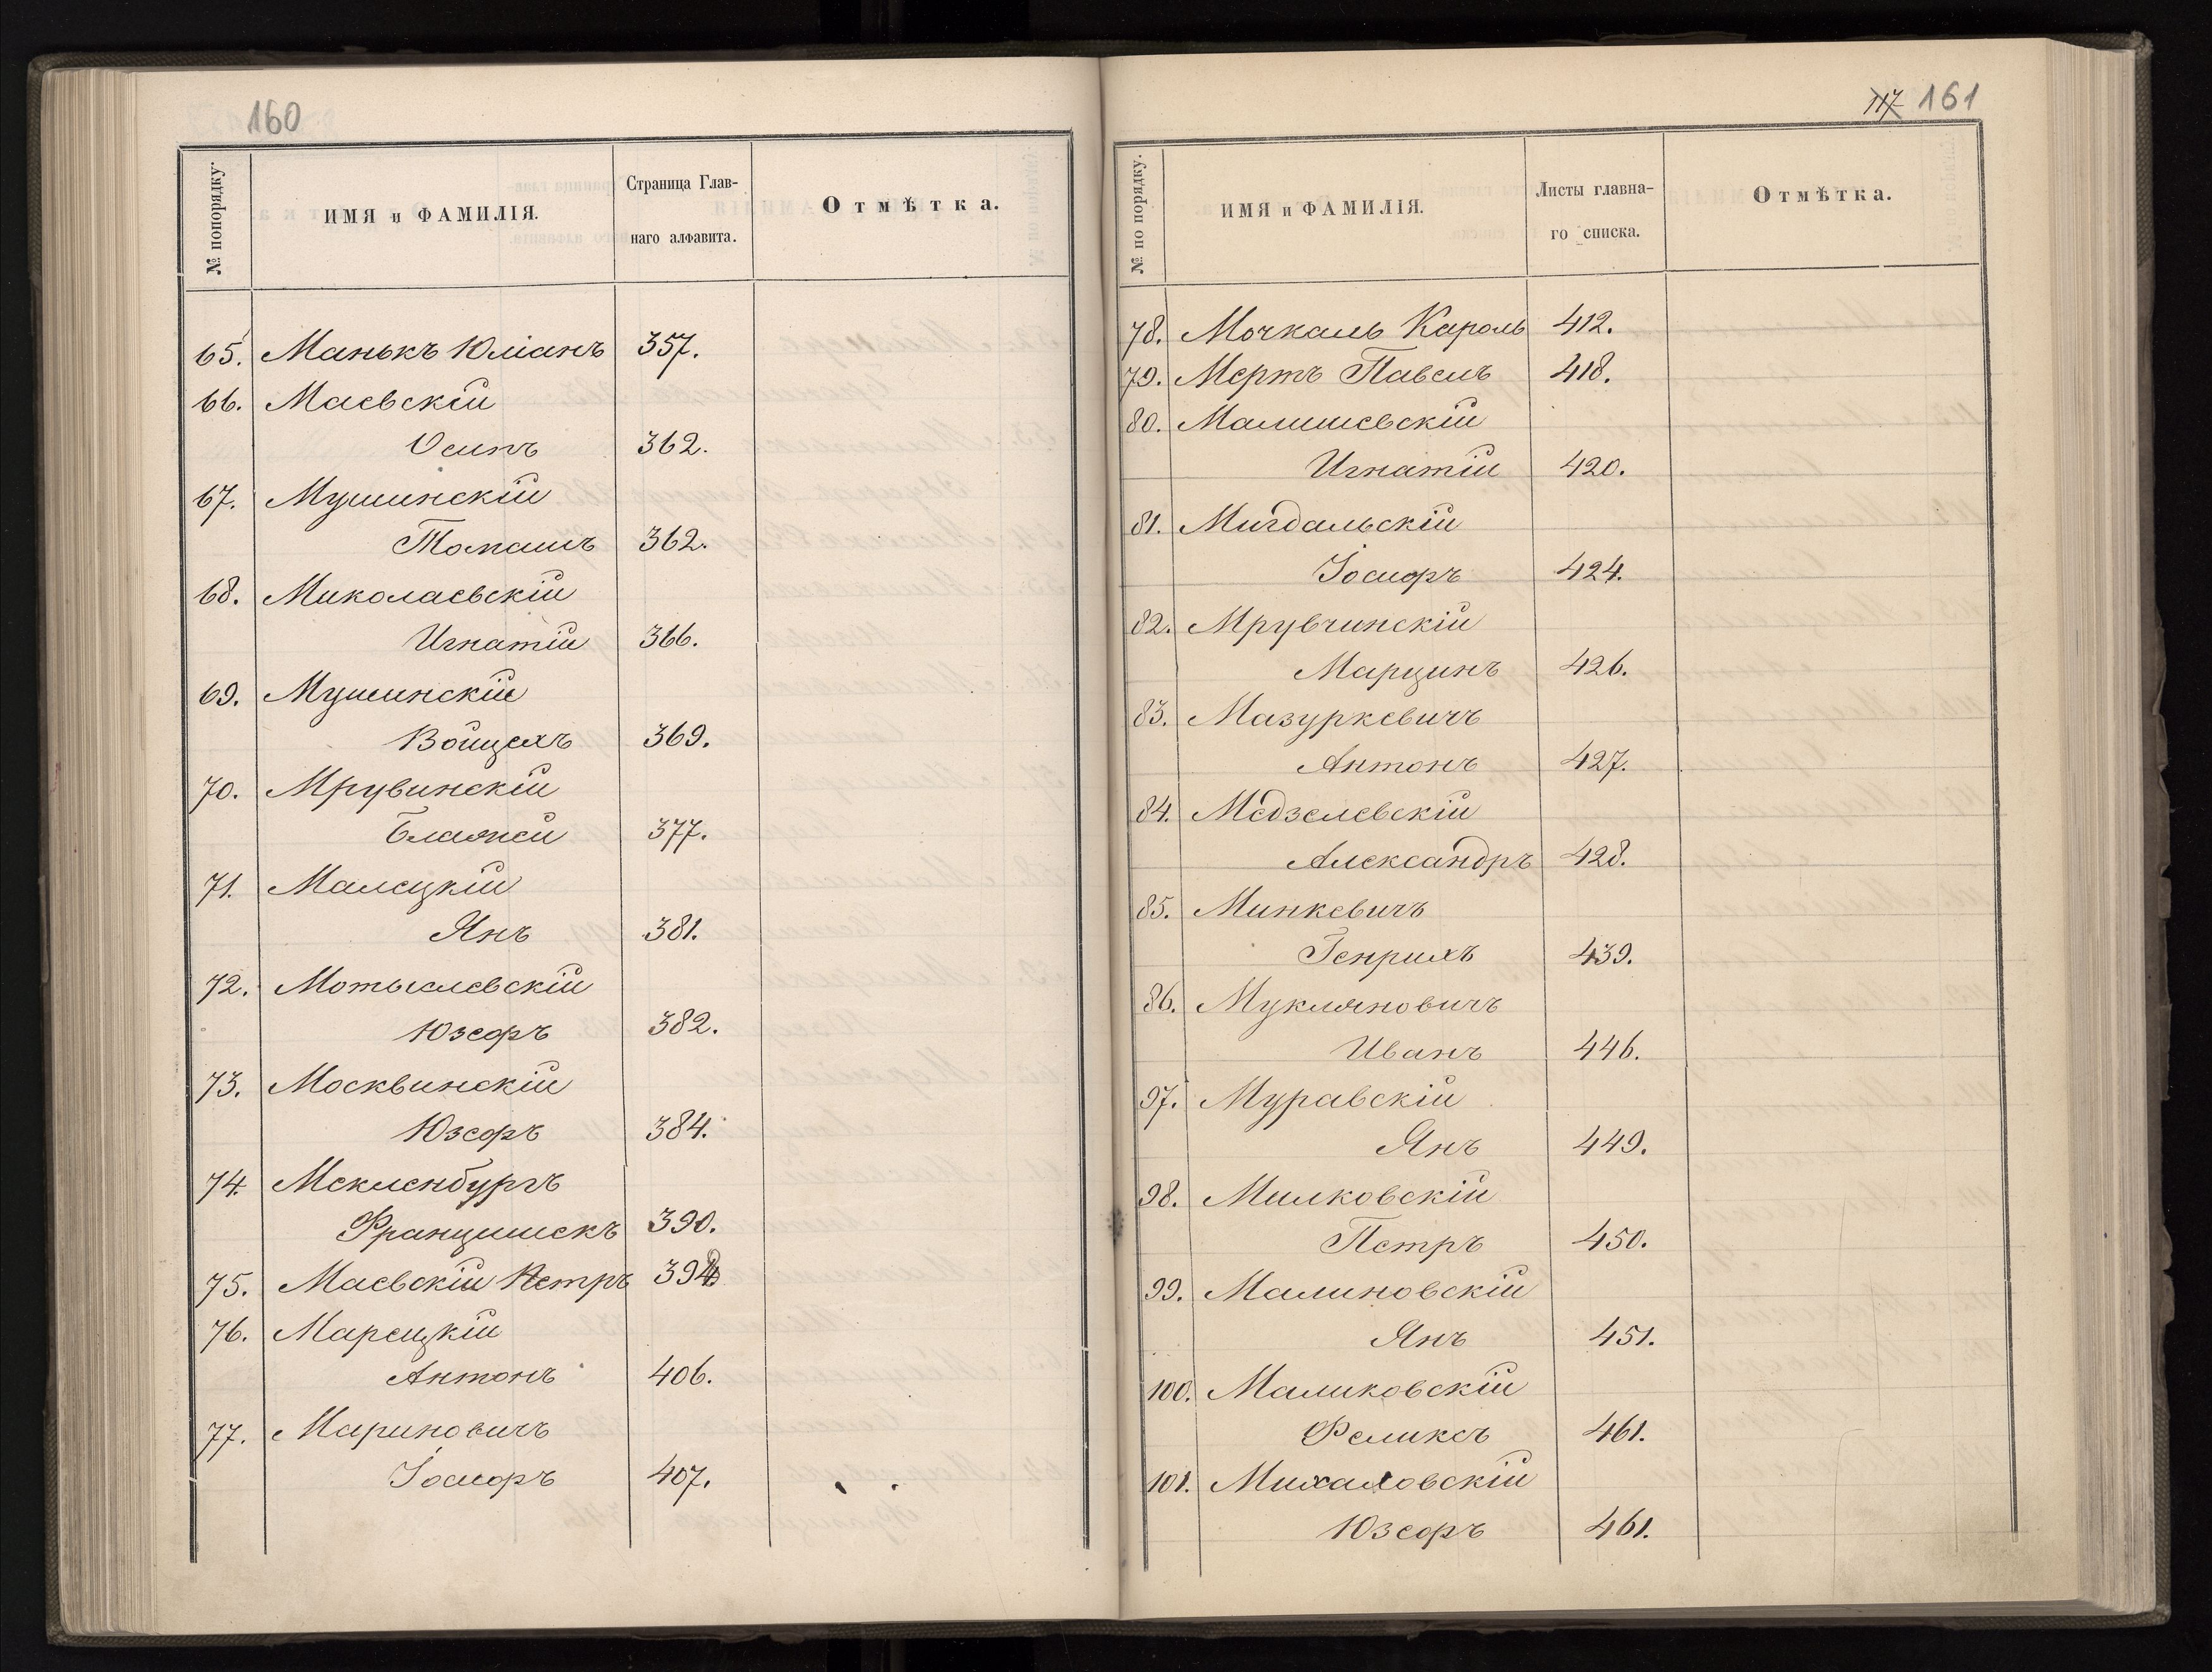 160
№ попорядку.
ИМЯ и ФАМИЛІЯ.
Страница Глав-
наго алфавита.
Отмѣтка.
65. Манькъ Юліанъ 357.
66. Маевскій
Осипъ 362.
67. Мушинскій
Томашъ 362.
68. Миколаевскій
Игнатій 366.
69. Мушинскій
Войцехъ 369.
70. Мрувинскій
Блажей 377.
71. Малецкій
Янъ 381.
72. Мотыслевскій
Юзефъ 382.
73. Москвинскій
Юзефъ 384.
74. Мекленбургъ
Францишекъ 390.
75. Маевскій Петръ 394
76. Марецкій
Антонъ 406.
77. Мариновичъ
Іосифъ 407.
117 161
№ по порядку.
ИМЯ и ФАМИЛІЯ.
Листы главна-
го списка.
Отмѣтка.
78. Мочкаль Кароль 412.
79. Мертъ Павелъ 418.
80. Малишевскій
Игнатій 420.
81. Мигдальскій
Іосифъ 424.
82. Мрувчинскій
Марцинъ 426.
83. Мазуркевичъ
Антонъ 427.
84. Медзелевскій
Александръ 428.
85. Минкевичъ
Генрихъ 439.
86. Мукляновичъ
Иванъ 446.
97. Муравскій
Янъ 449.
98. Милковскій
Петръ 450.
99. Малиновскій
Янъ 451.
100. Маликовскій
Феликсъ 461.
101. Михаловскій
Юзефъ 461.